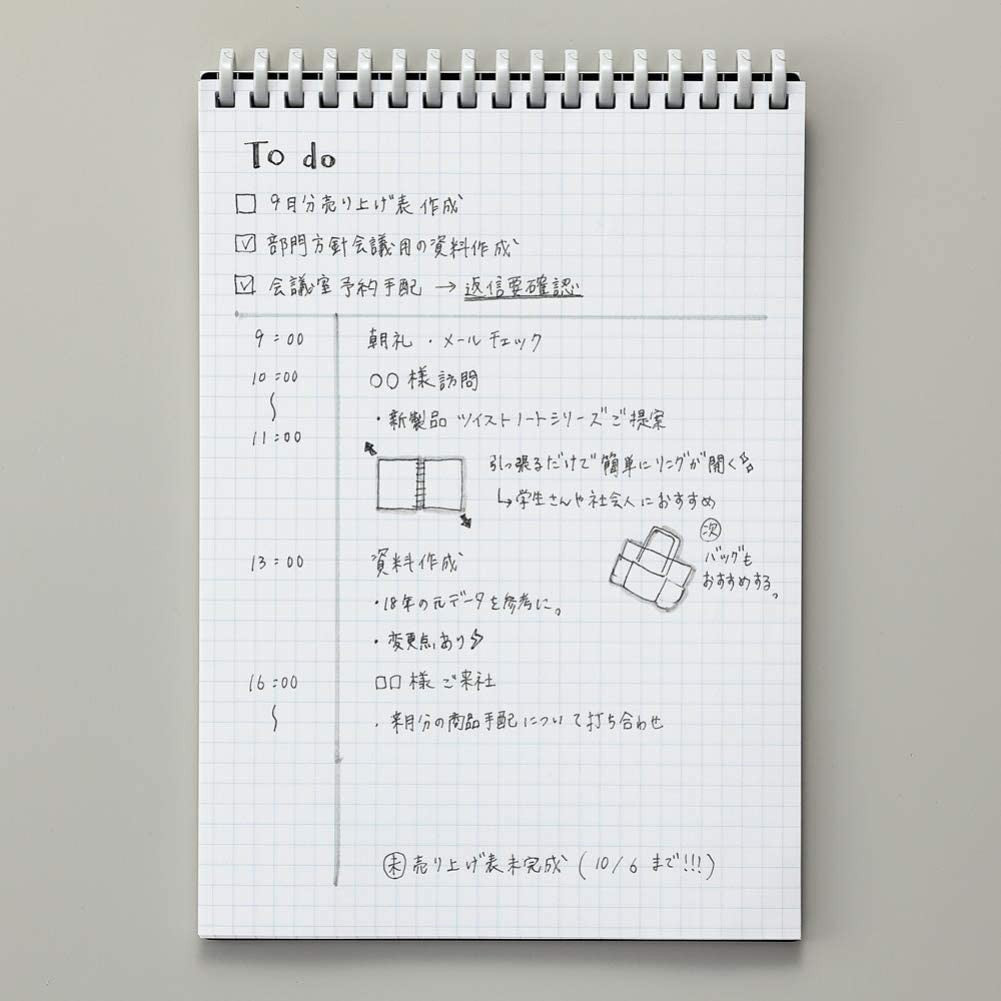 To do
□ 9月分売り上げ表 作成
☑ 部門方針会議用の資料作成
☑ 会議室 予約手配 → 返信要確認
9:00 朝礼 ・メールチェック
10:00 ○○様訪問
〜 ・新製品 ツイストノートシリーズご提案
11:00
引っ張るだけで簡単にリングが開く
↳学生さんや社会人におすすめ
次
バッグも
おすすめする。
13:00 資料作成
・18年の元データを参考に。
・変更点あり
16:00 □□様 ご来社
〜 ・来月分の商品手配について打ち合わせ
未 売り上げ表未完成 (10/6 まで!!!)